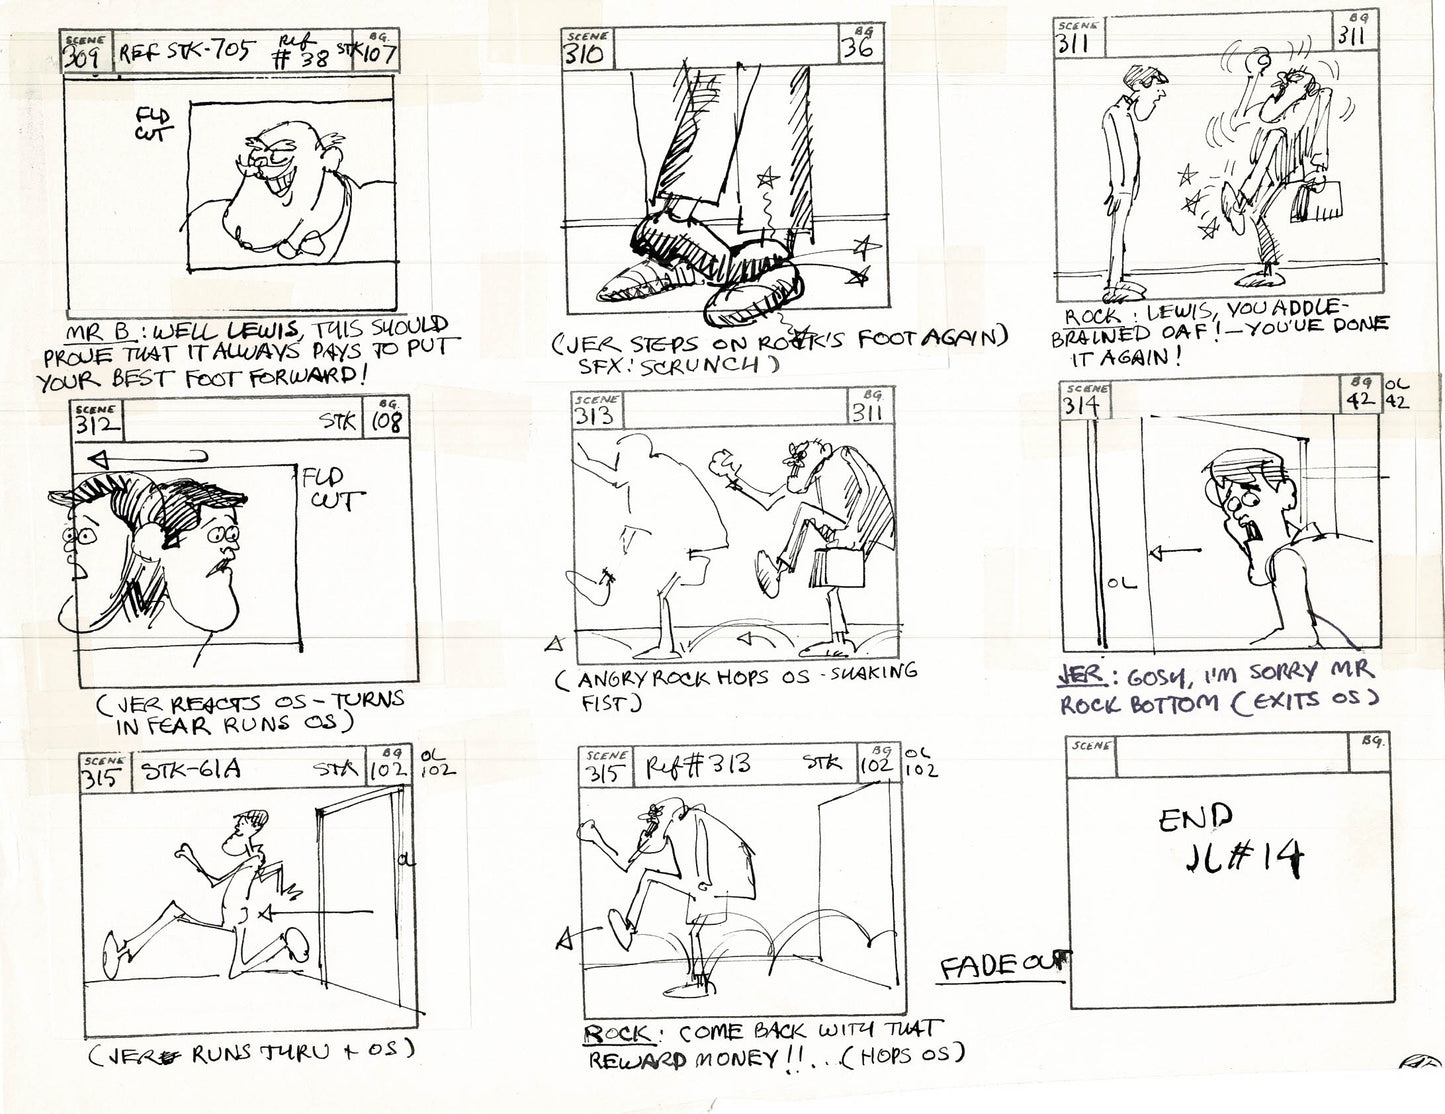 SCENE 309 REF STK-705 Ref # 38 STK BG. 107
FLD
CUT
MR B.: WELL LEWIS, THIS SHOULD
PROVE THAT IT ALWAYS PAYS TO PUT
YOUR BEST FOOT FORWARD!
SCENE 310 BG 36
(JER STEPS ON ROCK'S FOOT AGAIN)
SFX: SCRUNCH)
SCENE 311 BG 311
ROCK: LEWIS, YOU ADDLE-
BRAINED OAF! - YOU'VE DONE
IT AGAIN!
SCENE 312 STK BG. 108
FLD
CUT
(JER REACTS OS - TURNS
IN FEAR RUNS OS)
SCENE 313 BG. 311
(ANGRY ROCK HOPS OS - SHAKING
FIST)
SCENE 314 BG 42 OL 42
OL
JER: GOSH, I'M SORRY MR
ROCK BOTTOM (EXITS OS)
SCENE 315 STK-61A STK BG 102 OL 102
OL
(JER RUNS THRU + OS)
SCENE 315 Ref # 313 STK BG 102 OL 102
ROCK: COME BACK WITH THAT
REWARD MONEY!!... (HOPS OS)
SCENE BG.
END
JL #14
FADE OUT